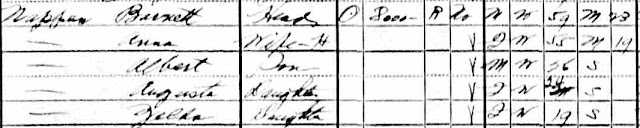 Nappen Barnett Head O 8000 R No M W 59 M 23
— Anna Wife-H V F W 55 M 19
— Albert Son V M W 26 S
— Augusta Daughter V F W 24 S
— Zelda Daughter V F W 19 S